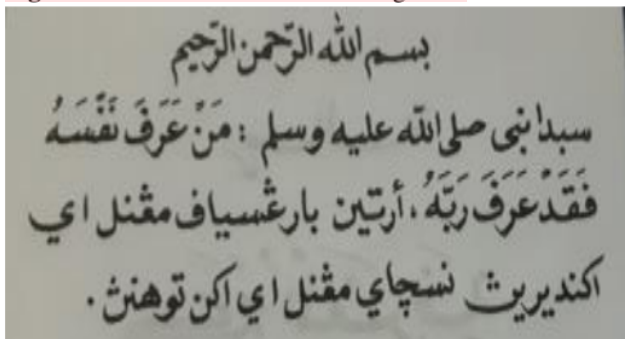 بسم الله الرّحمن الرّحيم
سبدا نبي صلى الله عليه وسلم : مَنْ عَرَفَ نَفْسَهُ
فَقَدْ عَرَفَ رَبَّهُ، أرتين بارڠسياف مڠنل اي
اكنديرين نسچاي مڠنل اي اكن توهنڽ.